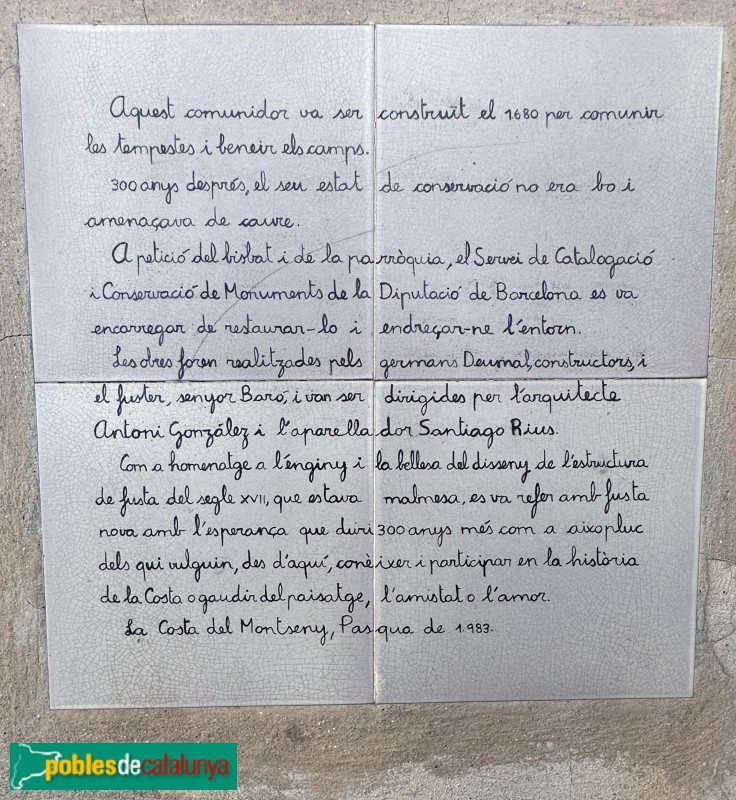 Aquest comunidor va ser construït el 1680 per comunir
les tempestes i beneir els camps.
300 anys després, el seu estat de conservació no era bo i
amenaçava de caure.
A petició del bisbat i de la parròquia, el Servei de Catalogació
i Conservació de Monuments de la Diputació de Barcelona es va
encarregar de restaurar-lo i endreçar-ne l'entorn.
Les obres foren realitzades pels germans Deumal, constructors, i
el fuster, senyor Baró, i van ser dirigides per l'arquitecte
Antoni González i l'aparellador Santiago Rius.
Com a homenatge a l'énginy i la bellesa del disseny de l'estructura
de fusta del segle XVII, que estava malmesa, es va refer amb fusta
nova amb l'esperança que duri 300 anys més com a aixopluc
dels qui vulguin, des d'aquí, conèixer i participar en la història
de la Costa o gaudir del paisatge, l'amistat o l'amor.
La Costa del Montseny, Pasqua de 1.983.
poblesdecatalunya